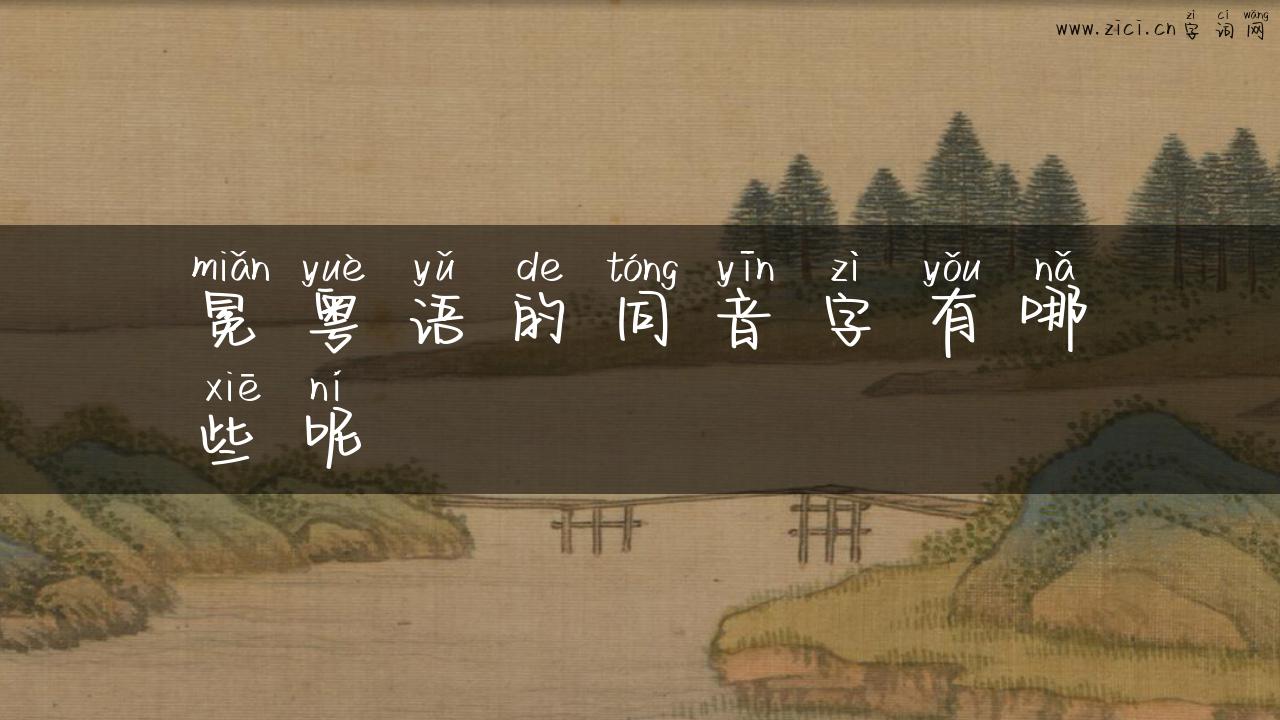 zì cí wǎng
www.zici.cn字词网
miǎn yuè yǔ de tóng yīn zì yǒu nǎ
冕粤语的同音字有哪
xiē ní
些呢